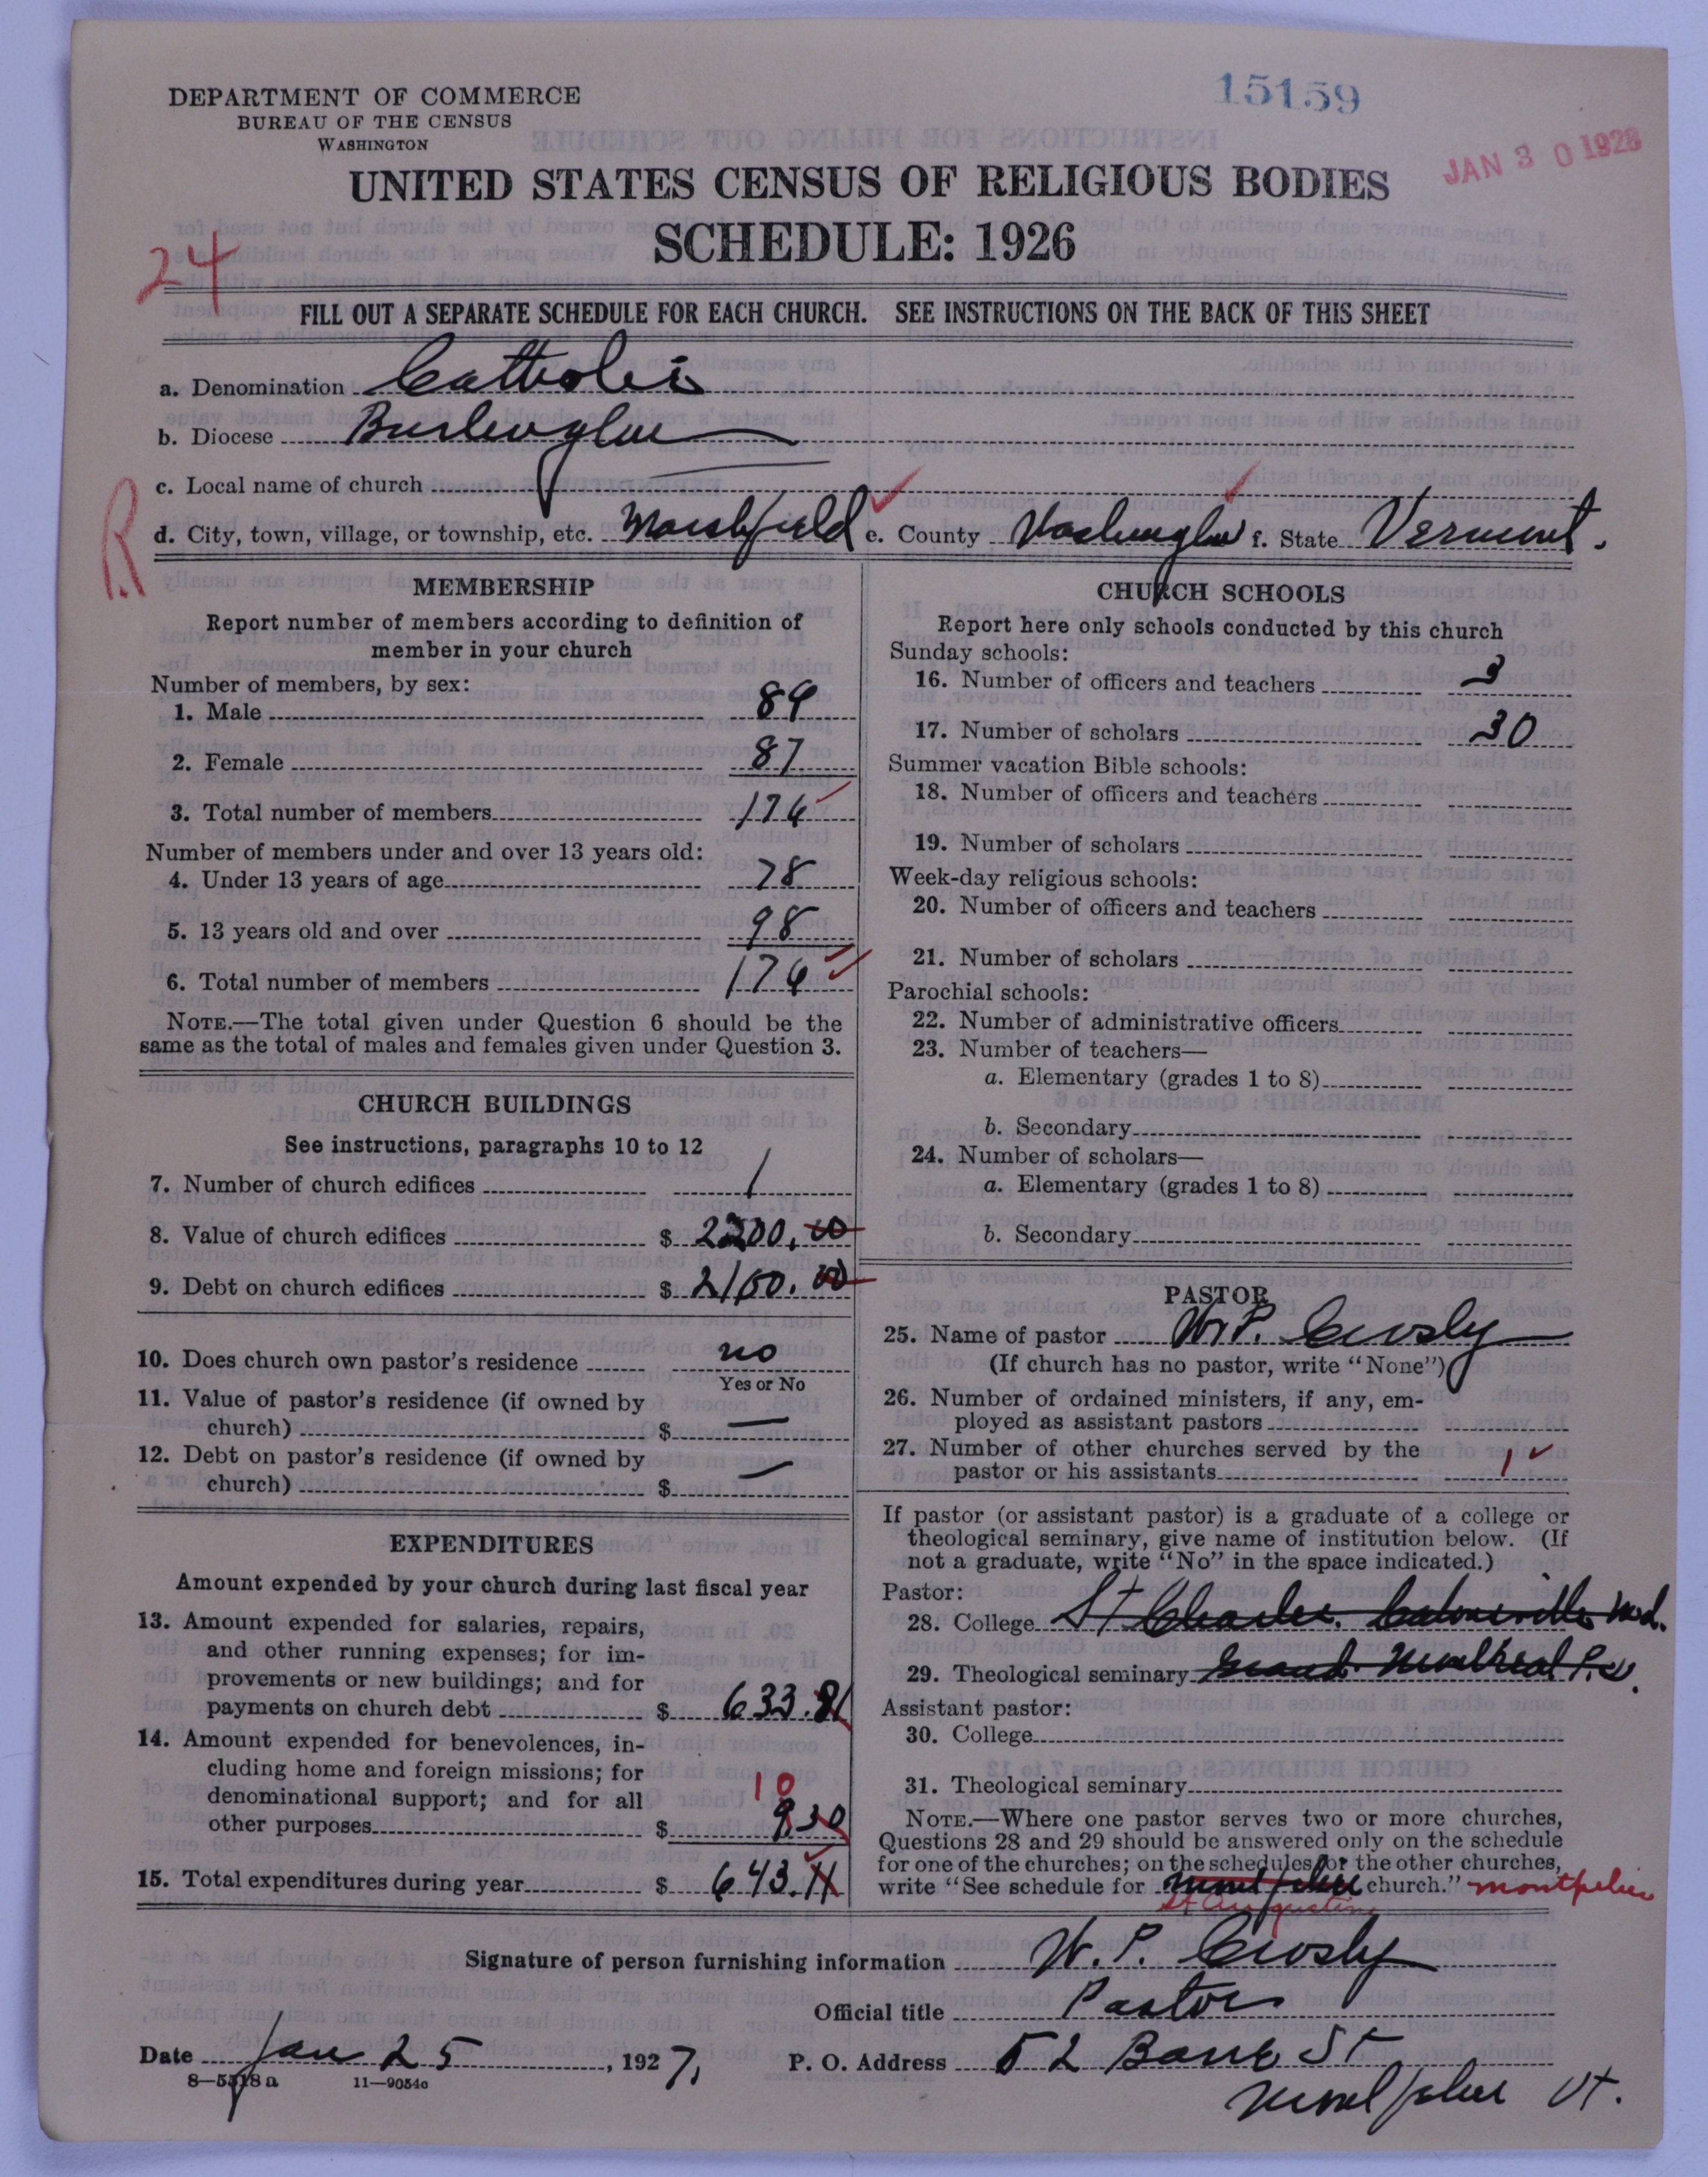 15159
JAN 30 1928
DEPARTMENT OF COMMERCE
BUREAU OF THE CENSUS
WASHINGTON
UNITED STATES CENSUS OF RELIGIOUS BODIES
SCHEDULE: 1926
24
FILL OUT A SEPARATE SCHEDULE FOR EACH CHURCH. SEE INSTRUCTIONS ON THE BACK OF THIS SHEET
a. Denomination Catholic
b. Diocese Burlington
c. Local name of church
R
d. City, town, village, or township, etc. Marshfield e. County Washington f. State Vermont.
MEMBERSHIP
Report number of members according to definition of
member in your church
Number of members, by sex:
1. Male 89
2. Female 87
3. Total number of members 176
Number of members under and over 13 years old:
4. Under 13 years of age 78
5. 13 years old and over 98
6. Total number of members 176
NOTE.—The total given under Question 6 should be the
same as the total of males and females given under Question 3.
CHURCH BUILDINGS
See instructions, paragraphs 10 to 12
7. Number of church edifices 1
8. Value of church edifices $ 2200.00
9. Debt on church edifices $ 2150.00
10. Does church own pastor's residence no
Yes or No
11. Value of pastor's residence (if owned by
church) $ —
12. Debt on pastor's residence (if owned by
church) $ —
EXPENDITURES
Amount expended by your church during last fiscal year
13. Amount expended for salaries, repairs,
and other running expenses; for im-
provements or new buildings; and for
payments on church debt $ 633.81
14. Amount expended for benevolences, in-
cluding home and foreign missions; for
denominational support; and for all
10
other purposes $ 9.30
15. Total expenditures during year $ 643.11
CHURCH SCHOOLS
Report here only schools conducted by this church
Sunday schools:
16. Number of officers and teachers 3
17. Number of scholars 30
Summer vacation Bible schools:
18. Number of officers and teachers
19. Number of scholars
Week-day religious schools:
20. Number of officers and teachers
21. Number of scholars
Parochial schools:
22. Number of administrative officers
23. Number of teachers—
a. Elementary (grades 1 to 8)
b. Secondary
24. Number of scholars—
a. Elementary (grades 1 to 8)
b. Secondary
PASTOR
25. Name of pastor W. P. Crosby
(If church has no pastor, write "None")
26. Number of ordained ministers, if any, em-
ployed as assistant pastors
27. Number of other churches served by the
pastor or his assistants 1
If pastor (or assistant pastor) is a graduate of a college or
theological seminary, give name of institution below. (If
not a graduate, write "No" in the space indicated.)
Pastor:
28. College St Charles. Catonsville Md.
29. Theological seminary Grand. Montreal P.Q.
Assistant pastor:
30. College
31. Theological seminary
NOTE.—Where one pastor serves two or more churches,
Questions 28 and 29 should be answered only on the schedule
for one of the churches; on the schedules for the other churches,
write "See schedule for Montpelier church." Montpelier
St Augustine
Signature of person furnishing information W. P. Crosby
Official title Pastor
Date Jan 25, 1927, P. O. Address 52 Barre St
Montpelier Vt.
8—5518a 11—9054c